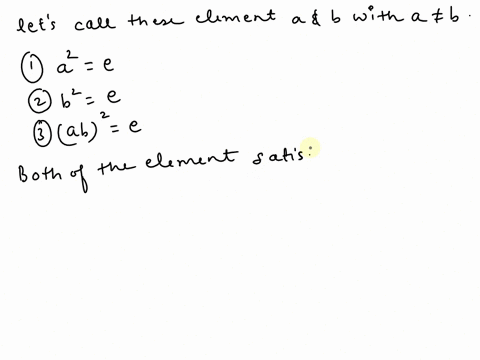 let's call these element a & b with a ≠ b.
① a² = e
② b² = e
③ (ab)² = e
Both of the element satis